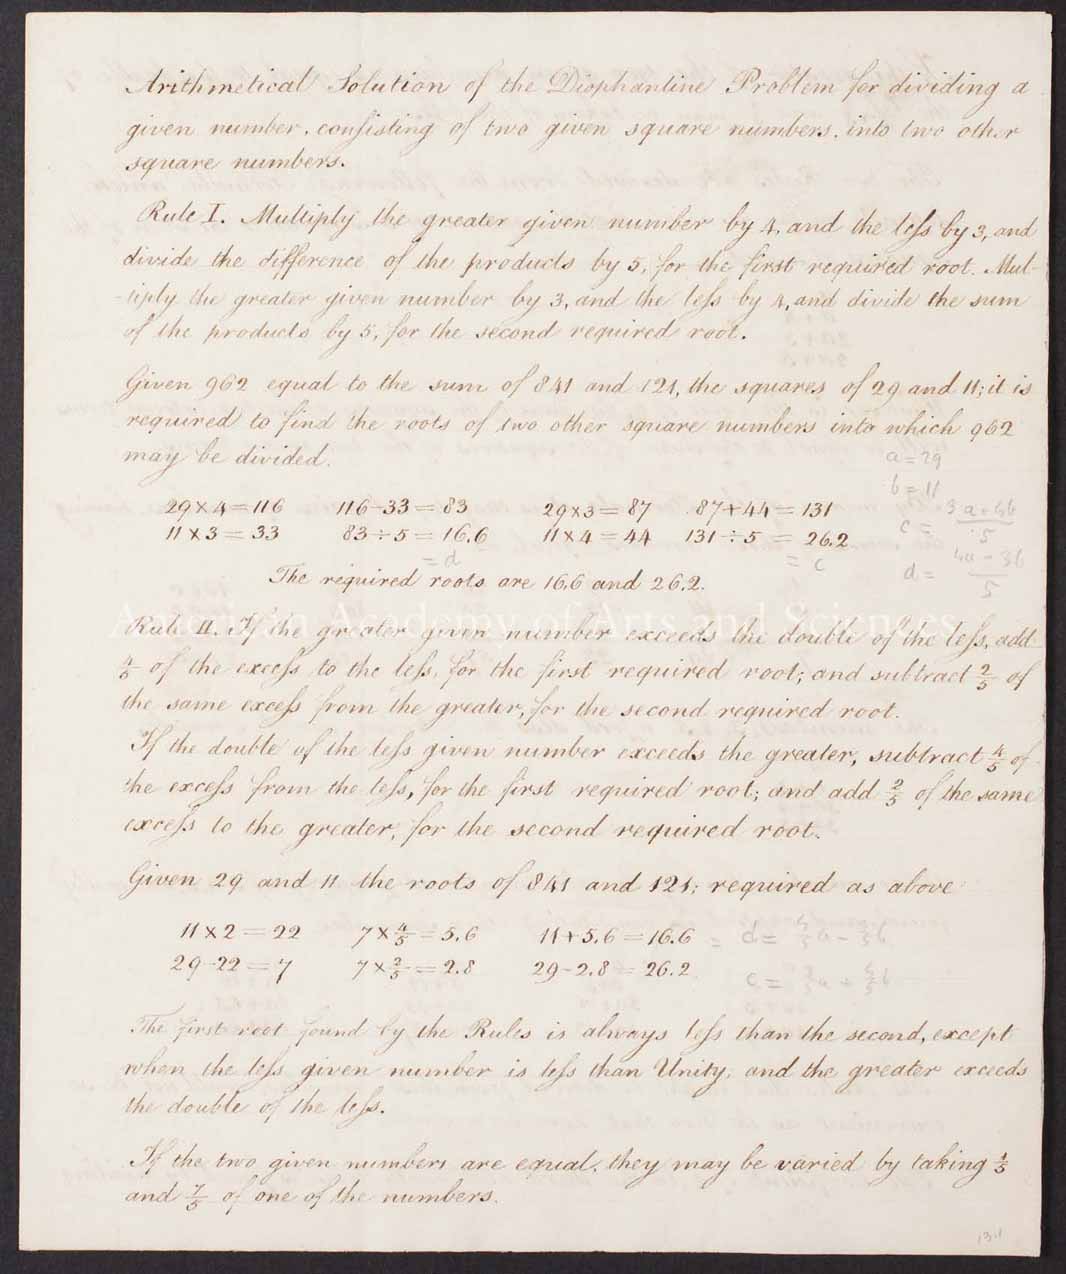 Arithmetical Solution of the Diophantine Problem for dividing a
given number, consisting of two given square numbers, into two other
square numbers.
Rule I. Multiply the greater given number by 4, and the less by 3, and
divide the difference of the products by 5, for the first required root. Mul-
-tiply the greater given number by 3, and the less by 4, and divide the sum
of the products by 5, for the second required root.
Given 962 equal to the sum of 841 and 121, the squares of 29 and 11; it is
required to find the roots of two other square numbers into which 962
may be divided.
a = 29
b = 11
29 × 4 = 116 116 - 33 = 83 29 × 3 = 87 87 + 44 = 131
c = 3a + 4b / 5
11 × 3 = 33 83 ÷ 5 = 16.6 11 × 4 = 44 131 ÷ 5 = 26.2
= d = c
d = 4a - 3b / 5
The required roots are 16.6 and 26.2.
American Academy of Arts and Sciences
Rule II. If the greater given number exceeds the double of the less, add
4/5 of the excess to the less, for the first required root; and subtract 2/5 of
the same excess from the greater, for the second required root.
If the double of the less given number exceeds the greater, subtract 4/5 of
the excess from the less, for the first required root; and add 2/5 of the same
excess to the greater, for the second required root.
Given 29 and 11 the roots of 841 and 121; required as above
11 × 2 = 22 7 × 4/5 = 5.6 11 + 5.6 = 16.6 = d = 4/5 a - 3/5 b
29 - 22 = 7 7 × 2/5 = 2.8 29 - 2.8 = 26.2 c = 3/5 a + 4/5 b
The first root found by the Rules is always less than the second, except
when the less given number is less than Unity, and the greater exceeds
the double of the less.
If the two given numbers are equal, they may be varied by taking 1/5
and 7/5 of one of the numbers.